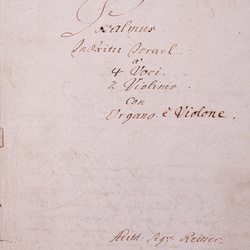 Psalmus
In Exitu Israel
à
4 Voci
2 Violinis
con
Organo è Violone.
Auth: Sigre Reitter.